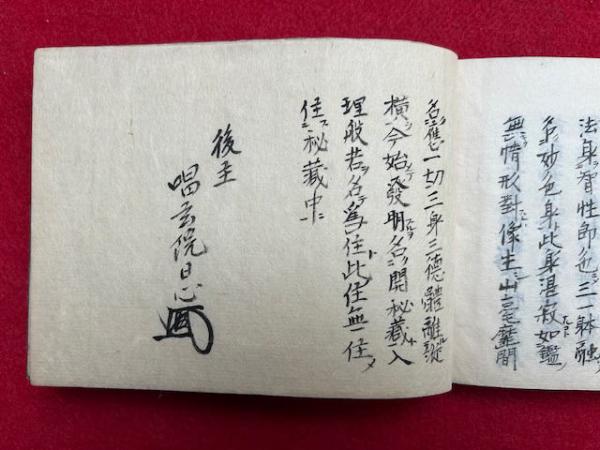 法身智性即色三一躰融
名妙色身此身湛寂如鑑
無情形對像生毫釐間
名應一切三身三德體離縱
横今始發明名開秘藏入
理般若名爲住此住無住
住秘藏中
後主
唱玄院日心